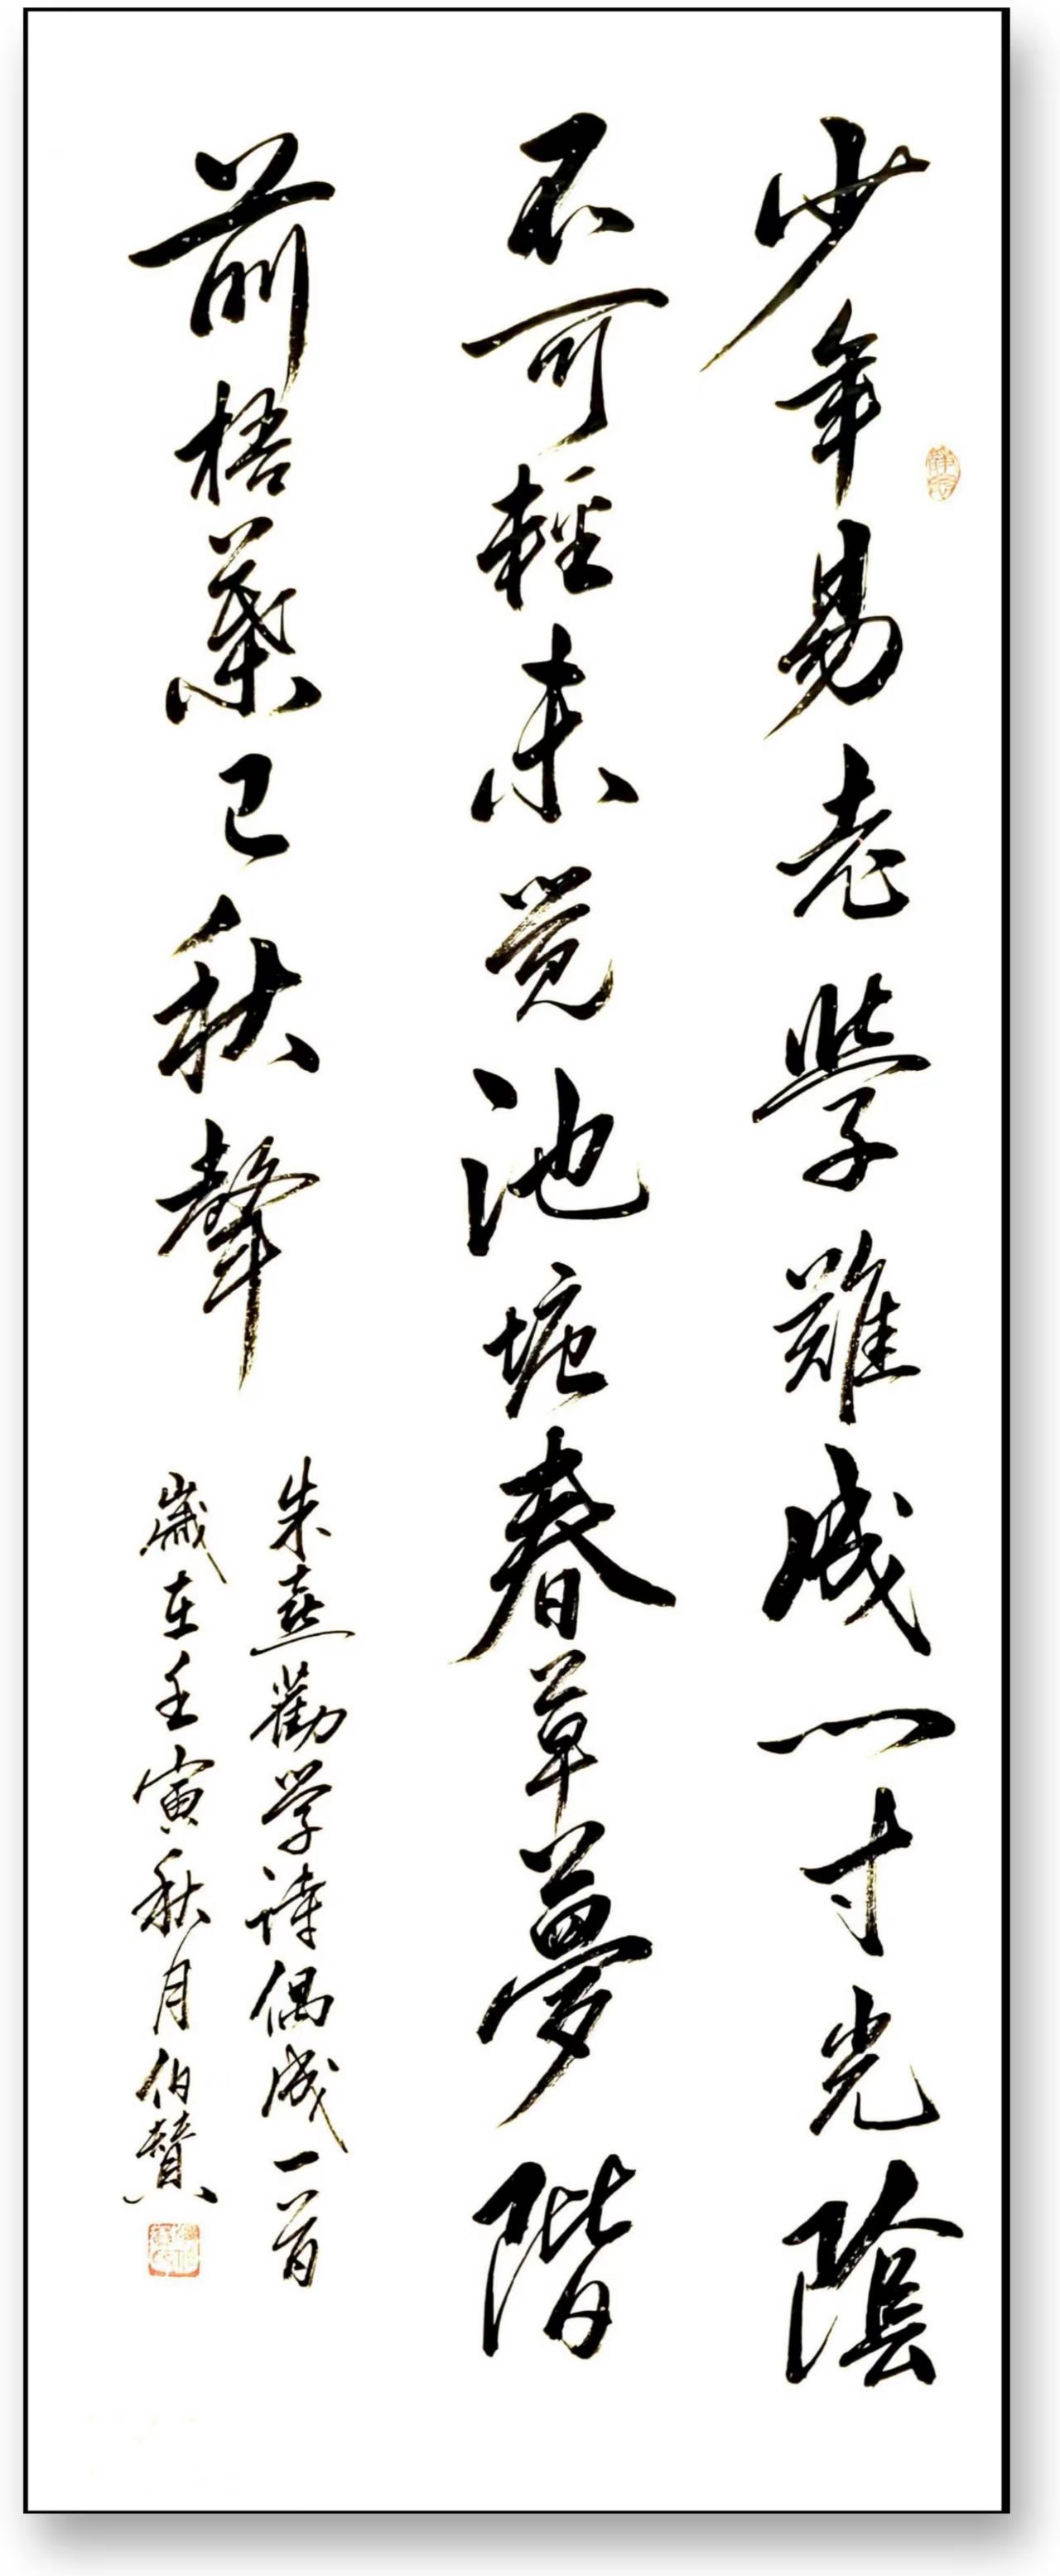 少年易老學難成一寸光陰
不可輕未覺池塘春草夢階
前梧葉已秋聲
朱熹勸学詩偶成一首
歲在壬寅秋月伯贊